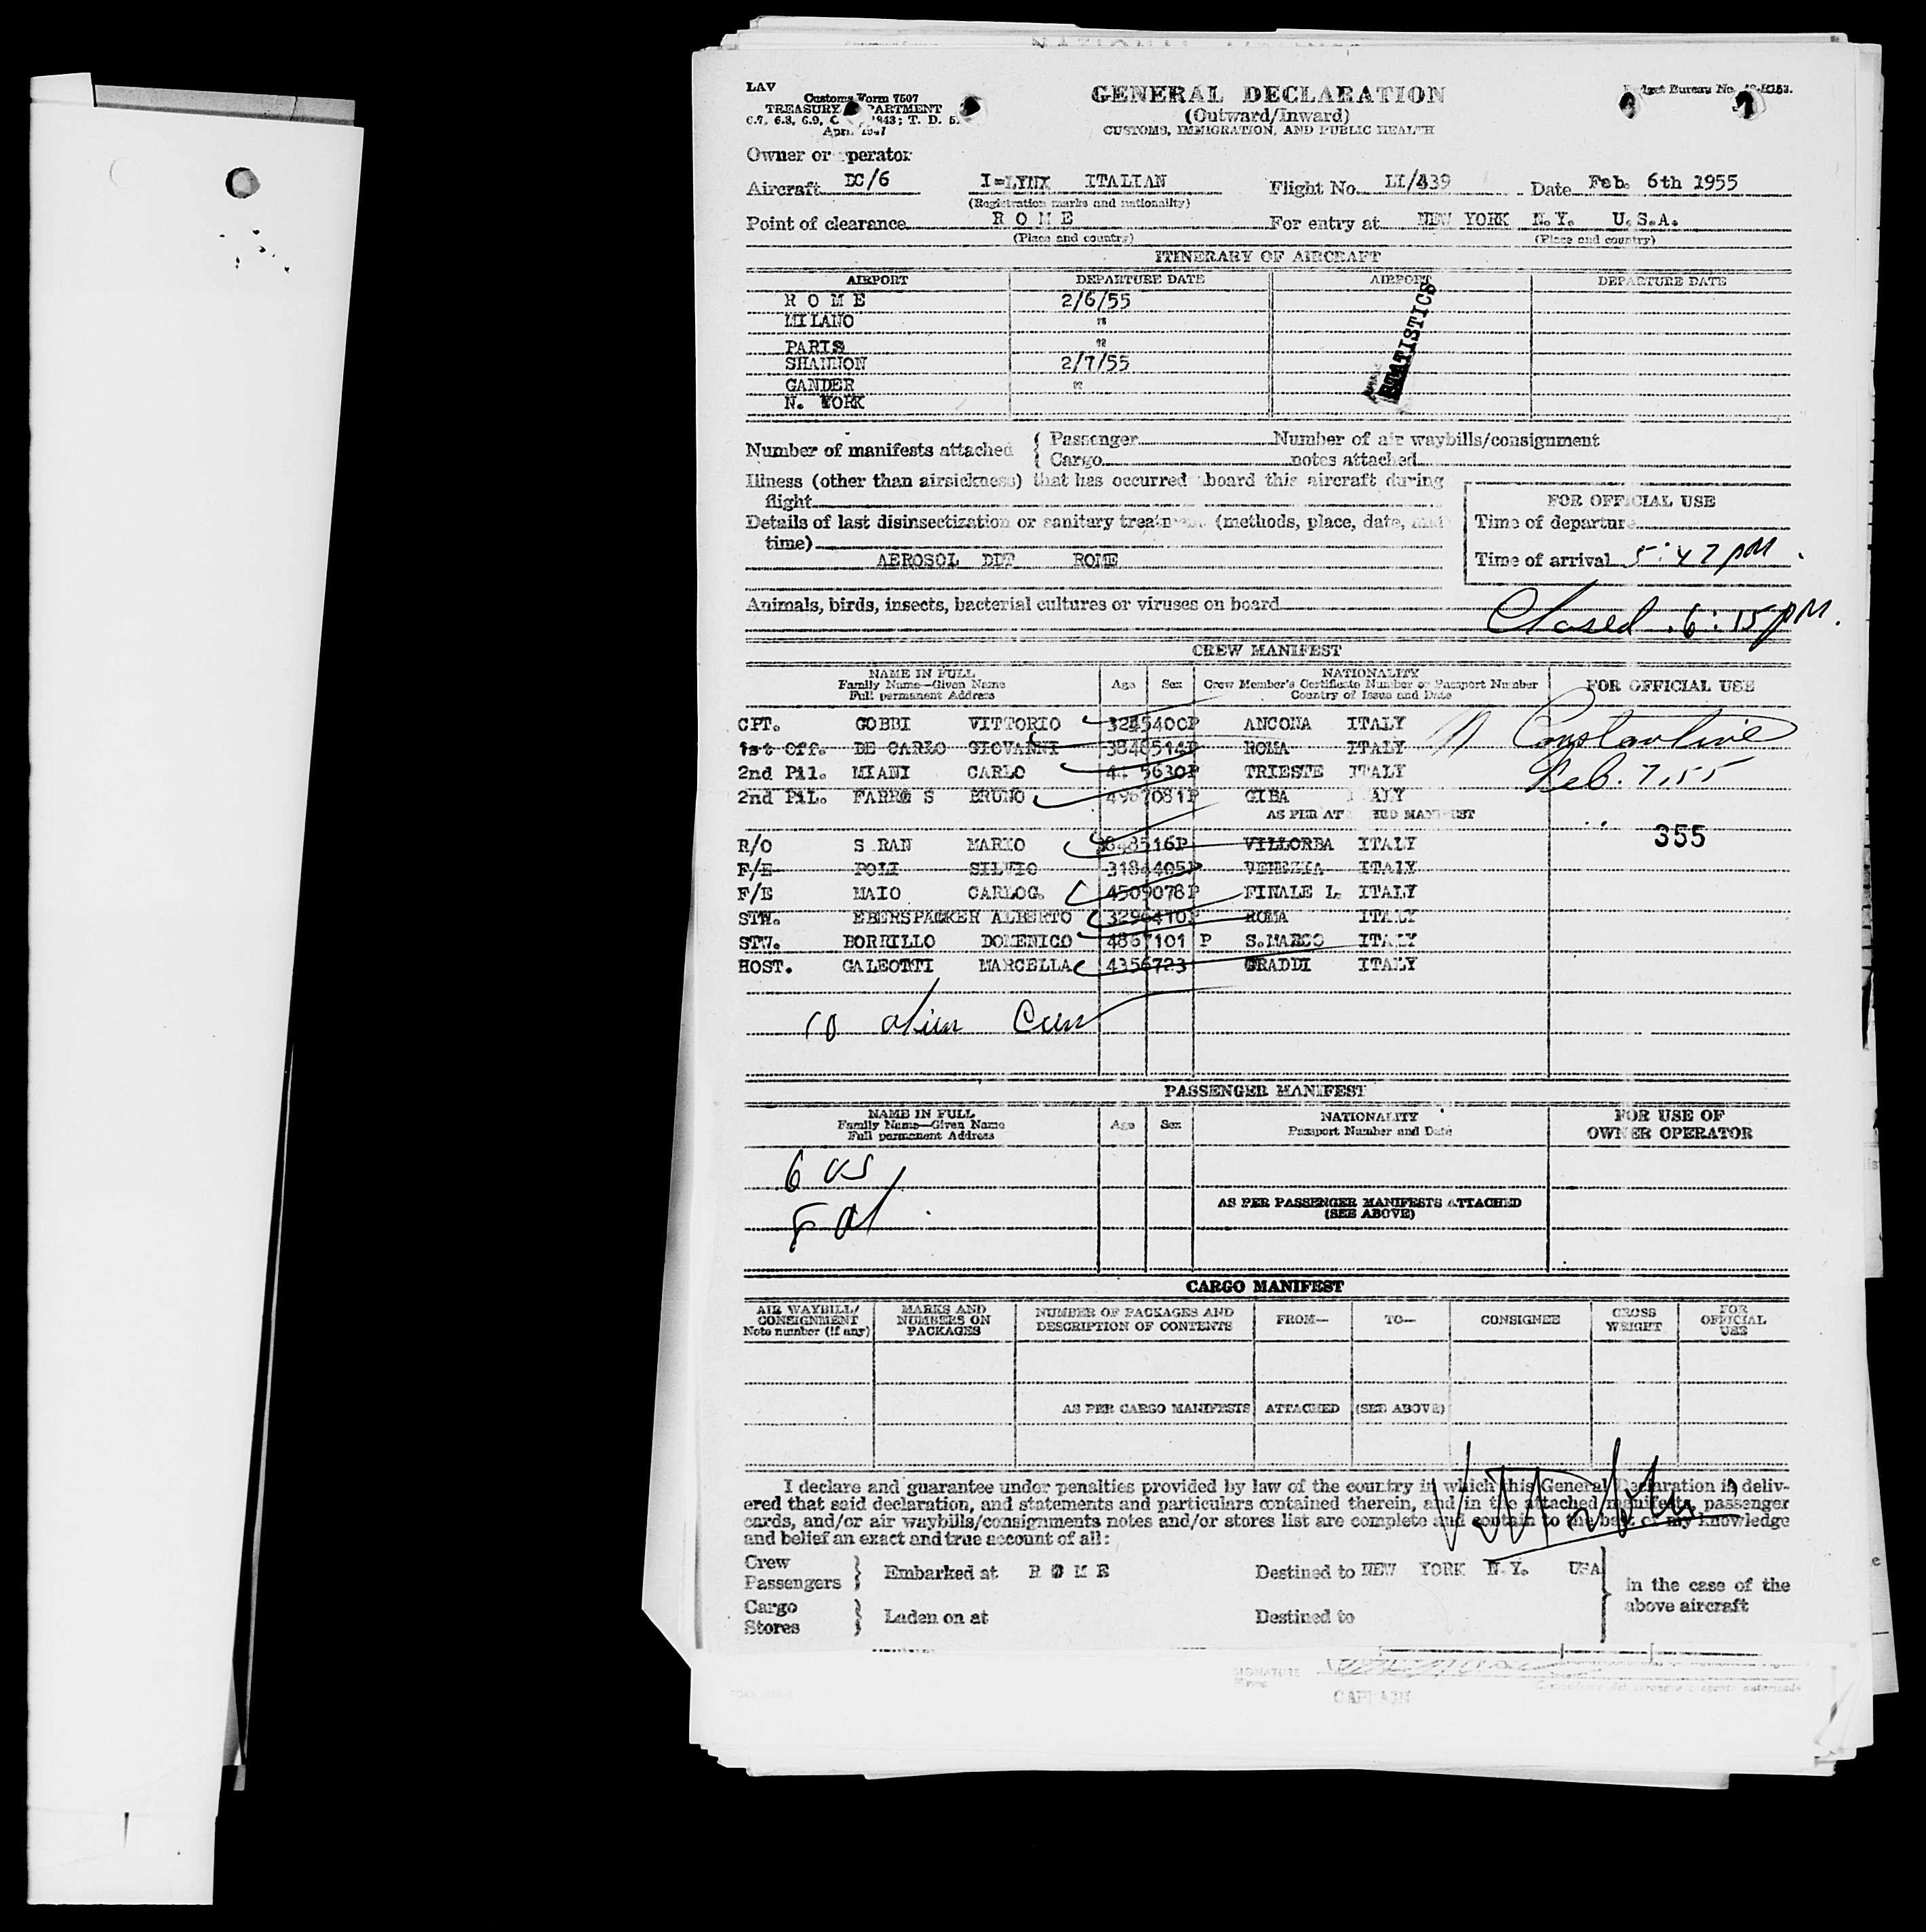 LAV
Customs Form 7507
TREASURY DEPARTMENT
April 1947
GENERAL DECLARATION
(Outward/Inward)
CUSTOMS, IMMIGRATION, AND PUBLIC HEALTH
Budget Bureau No.
Owner or operator
Aircraft DC/6 I-LYNX ITALIAN Flight No. LI/439 Date Feb. 6th 1955
(Registration marks and nationality)
Point of clearance ROME For entry at NEW YORK N.Y. U.S.A.
(Place and country) (Place and country)
ITINERARY OF AIRCRAFT
AIRPORT DEPARTURE DATE AIRPORT DEPARTURE DATE
ROME 2/6/55
MILANO "
PARIS "
SHANNON 2/7/55
GANDER "
N. YORK
STATISTICS
Number of manifests attached { Passenger Number of air waybills/consignment
Cargo notes attached
Illness (other than airsickness) that has occurred aboard this aircraft during
flight
FOR OFFICIAL USE
Details of last disinsectization or sanitary treatment (methods, place, date, and
time)
Time of departure
AEROSOL DDT ROME
Time of arrival 5:47 PM
Animals, birds, insects, bacterial cultures or viruses on board
Closed 6:15 PM.
CREW MANIFEST
NAME IN FULL
Family Name—Given Name
Full permanent Address
Age Sex
NATIONALITY
Crew Member's Certificate Number or Passport Number
Country of Issue and Date
FOR OFFICIAL USE
CPT. GOBBI VITTORIO 3245400P ANCONA ITALY
1st Off. DE CARLO GIOVANNI 3848514P ROMA ITALY Constantine
2nd Pil. MIANI CARLO 5630P TRIESTE ITALY Feb. 7, 55
2nd Pil. BRUNO 4967081P GIBA ITALY
AS PER ATTACHED MANIFEST
R/O MARIO 3848516P VILLORBA ITALY 355
F/E POLI SILVIO 3184405P VENEZIA ITALY
F/E MAIO CARLO G. 4509078P FINALE L. ITALY
STW. EBERSPACKER ALBERTO ROMA ITALY
STW. BORRILLO DOMENICO 4867101 P S.MARCO ITALY
HOST. GALEOTTI MARCELLA 4356723 GRADDI ITALY
10 alien Crew
PASSENGER MANIFEST
NAME IN FULL
Family Name—Given Name
Full permanent Address
Age Sex
NATIONALITY
Passport Number and Date
FOR USE OF
OWNER OPERATOR
6 US
AS PER PASSENGER MANIFESTS ATTACHED
(SEE ABOVE)
CARGO MANIFEST
AIR WAYBILL/
CONSIGNMENT
Note number (if any)
MARKS AND
NUMBERS ON
PACKAGES
NUMBER OF PACKAGES AND
DESCRIPTION OF CONTENTS
FROM— TO— CONSIGNEE
GROSS
WEIGHT
FOR
OFFICIAL
USE
AS PER CARGO MANIFESTS ATTACHED (SEE ABOVE)
I declare and guarantee under penalties provided by law of the country in which this General Declaration is deliv-
ered that said declaration, and statements and particulars contained therein, and in the attached manifests, passenger
cards, and/or air waybills/consignments notes and/or stores list are complete and contain to the best of my knowledge
and belief an exact and true account of all:
Crew
Passengers } Embarked at ROME Destined to NEW YORK N.Y. USA
in the case of the
above aircraft
Cargo
Stores } Laden on at Destined to
SIGNATURE
CAPTAIN